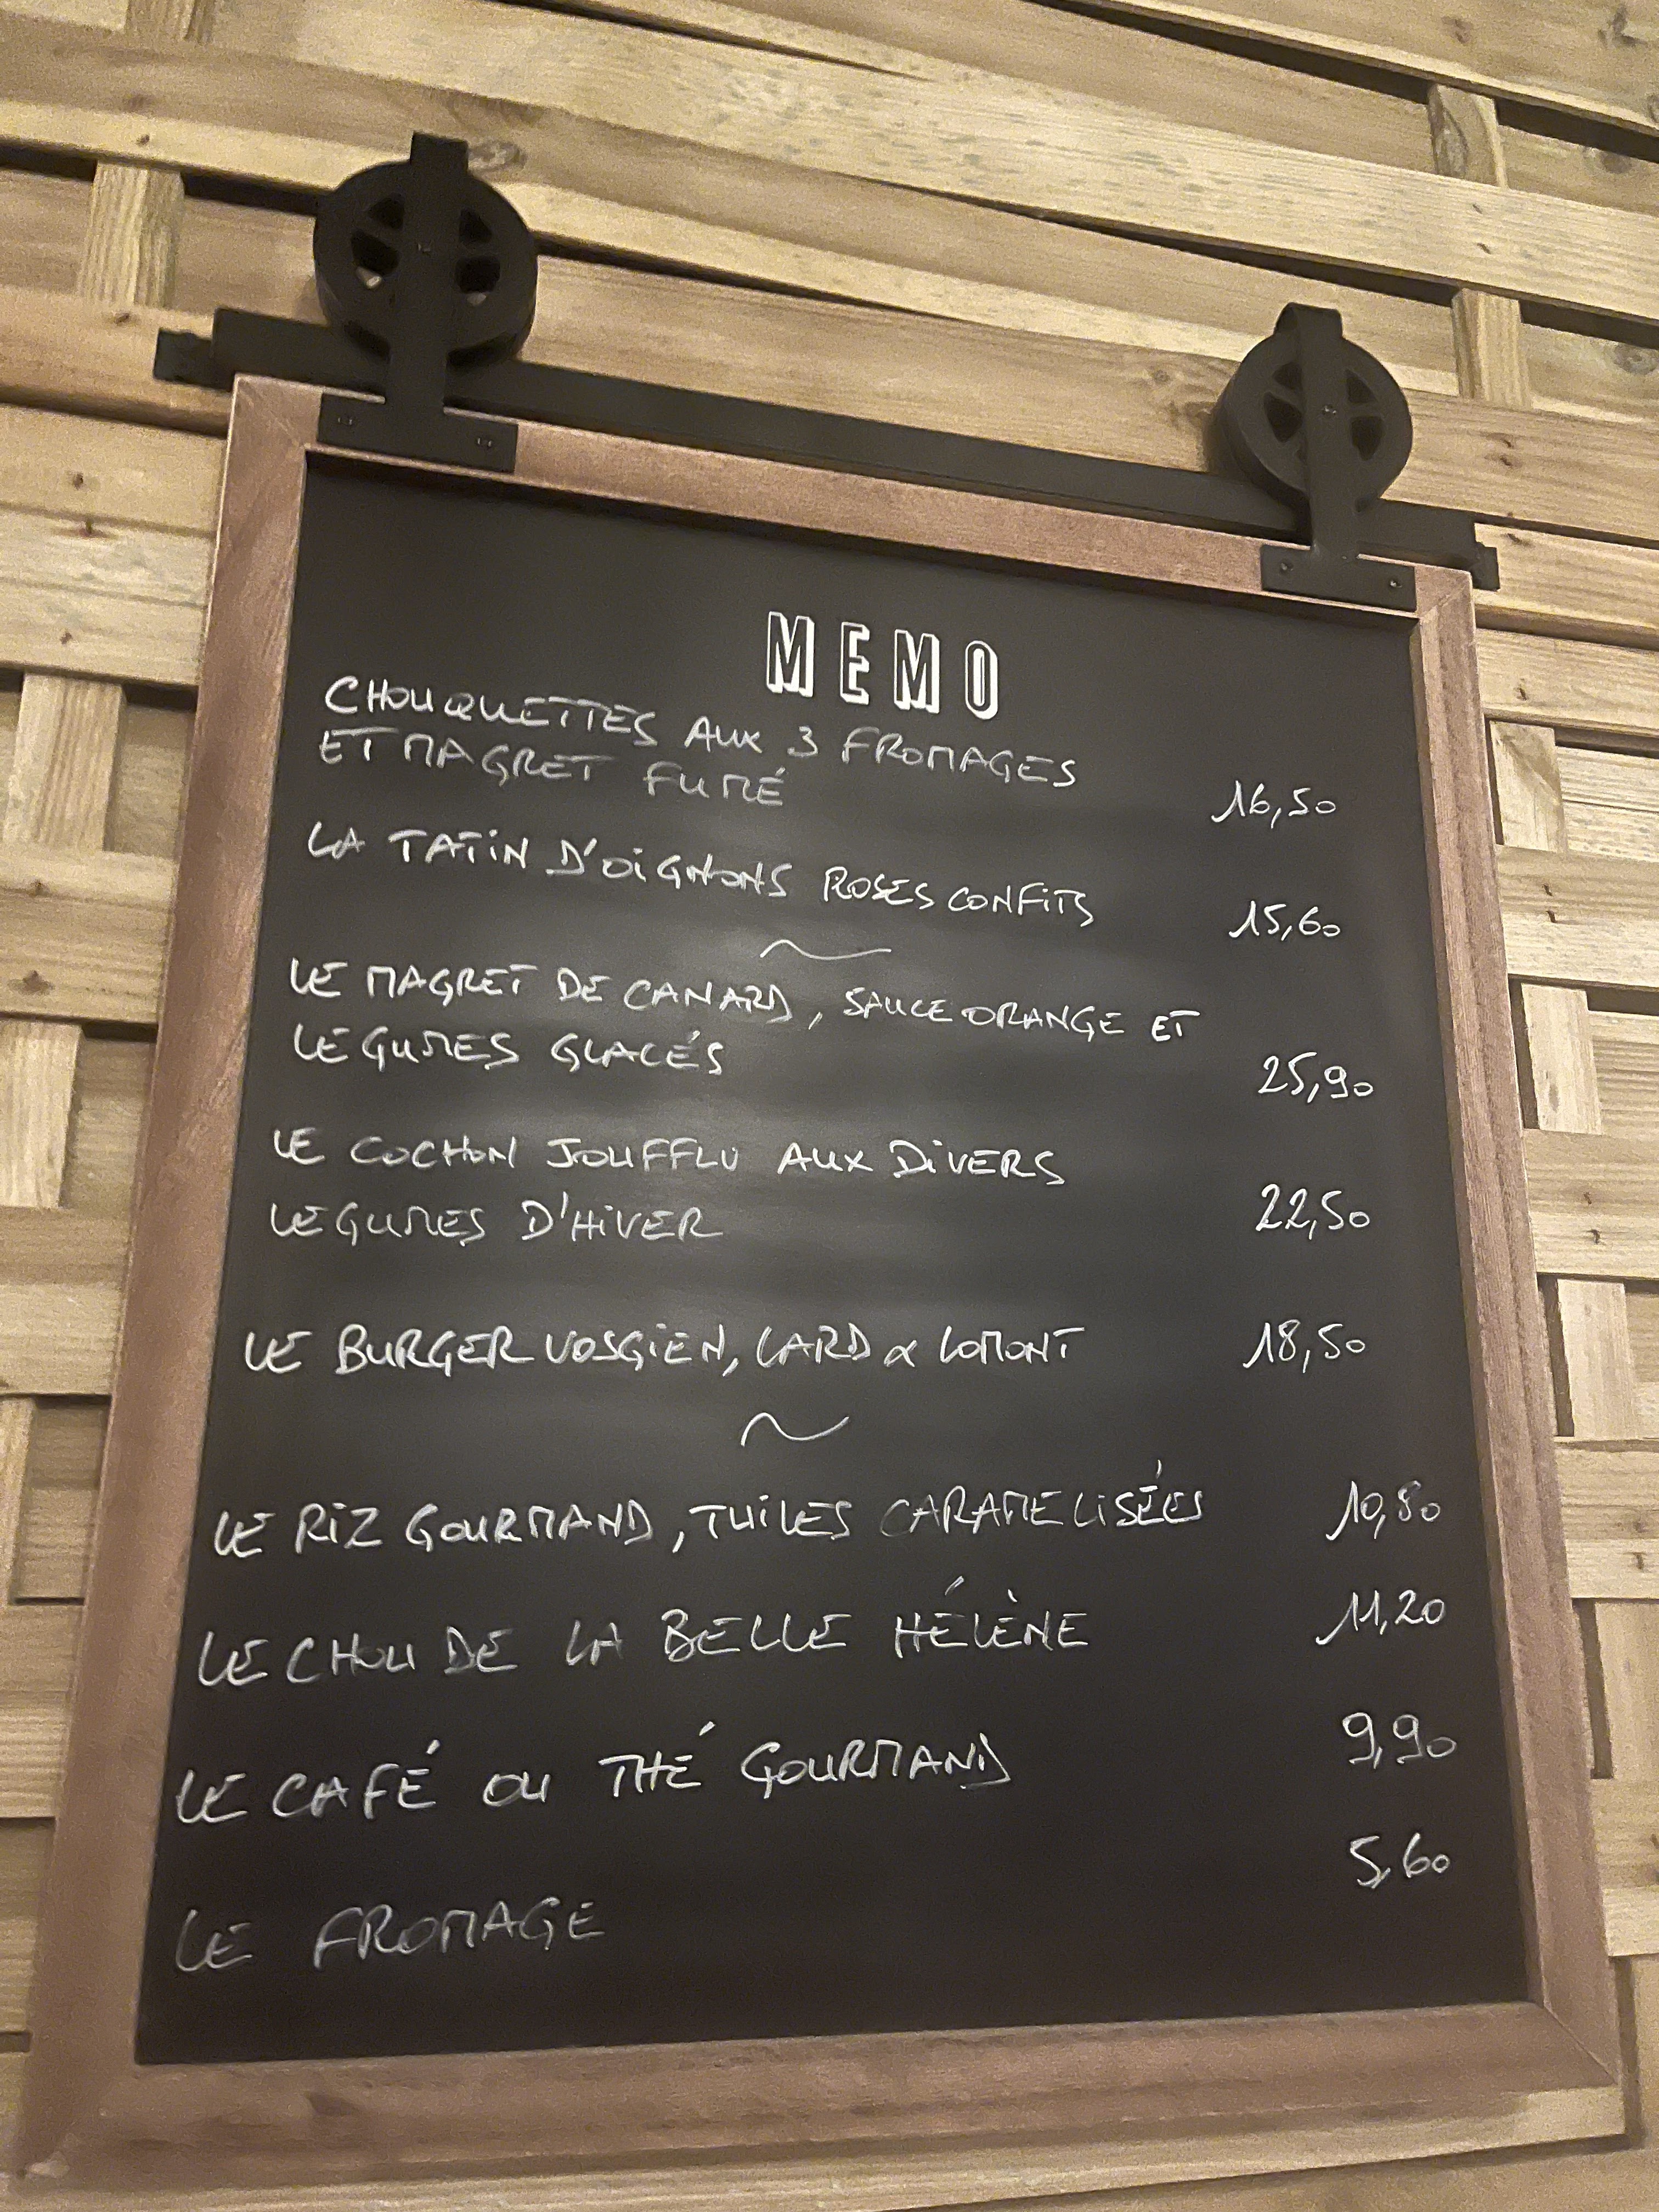 MEMO
CHOUQUETTES AUX 3 FROMAGES
ET MAGRET FUMÉ 16,50
LA TATIN D'OIGNONS ROSES CONFITS 15,60
~
LE MAGRET DE CANARD, SAUCE ORANGE ET
LEGUMES GLACÉS 25,90
LE COCHON JOUFFLU AUX DIVERS
LEGUMES D'HIVER 22,50
LE BURGER VOSGIEN, LARD & LOMONT 18,50
~
LE RIZ GOURMAND, TUILES CARAMELISÉES 10,80
LE CHOU DE LA BELLE HÉLÈNE 11,20
LE CAFÉ OU THÉ GOURMAND 9,90
LE FROMAGE 5,60